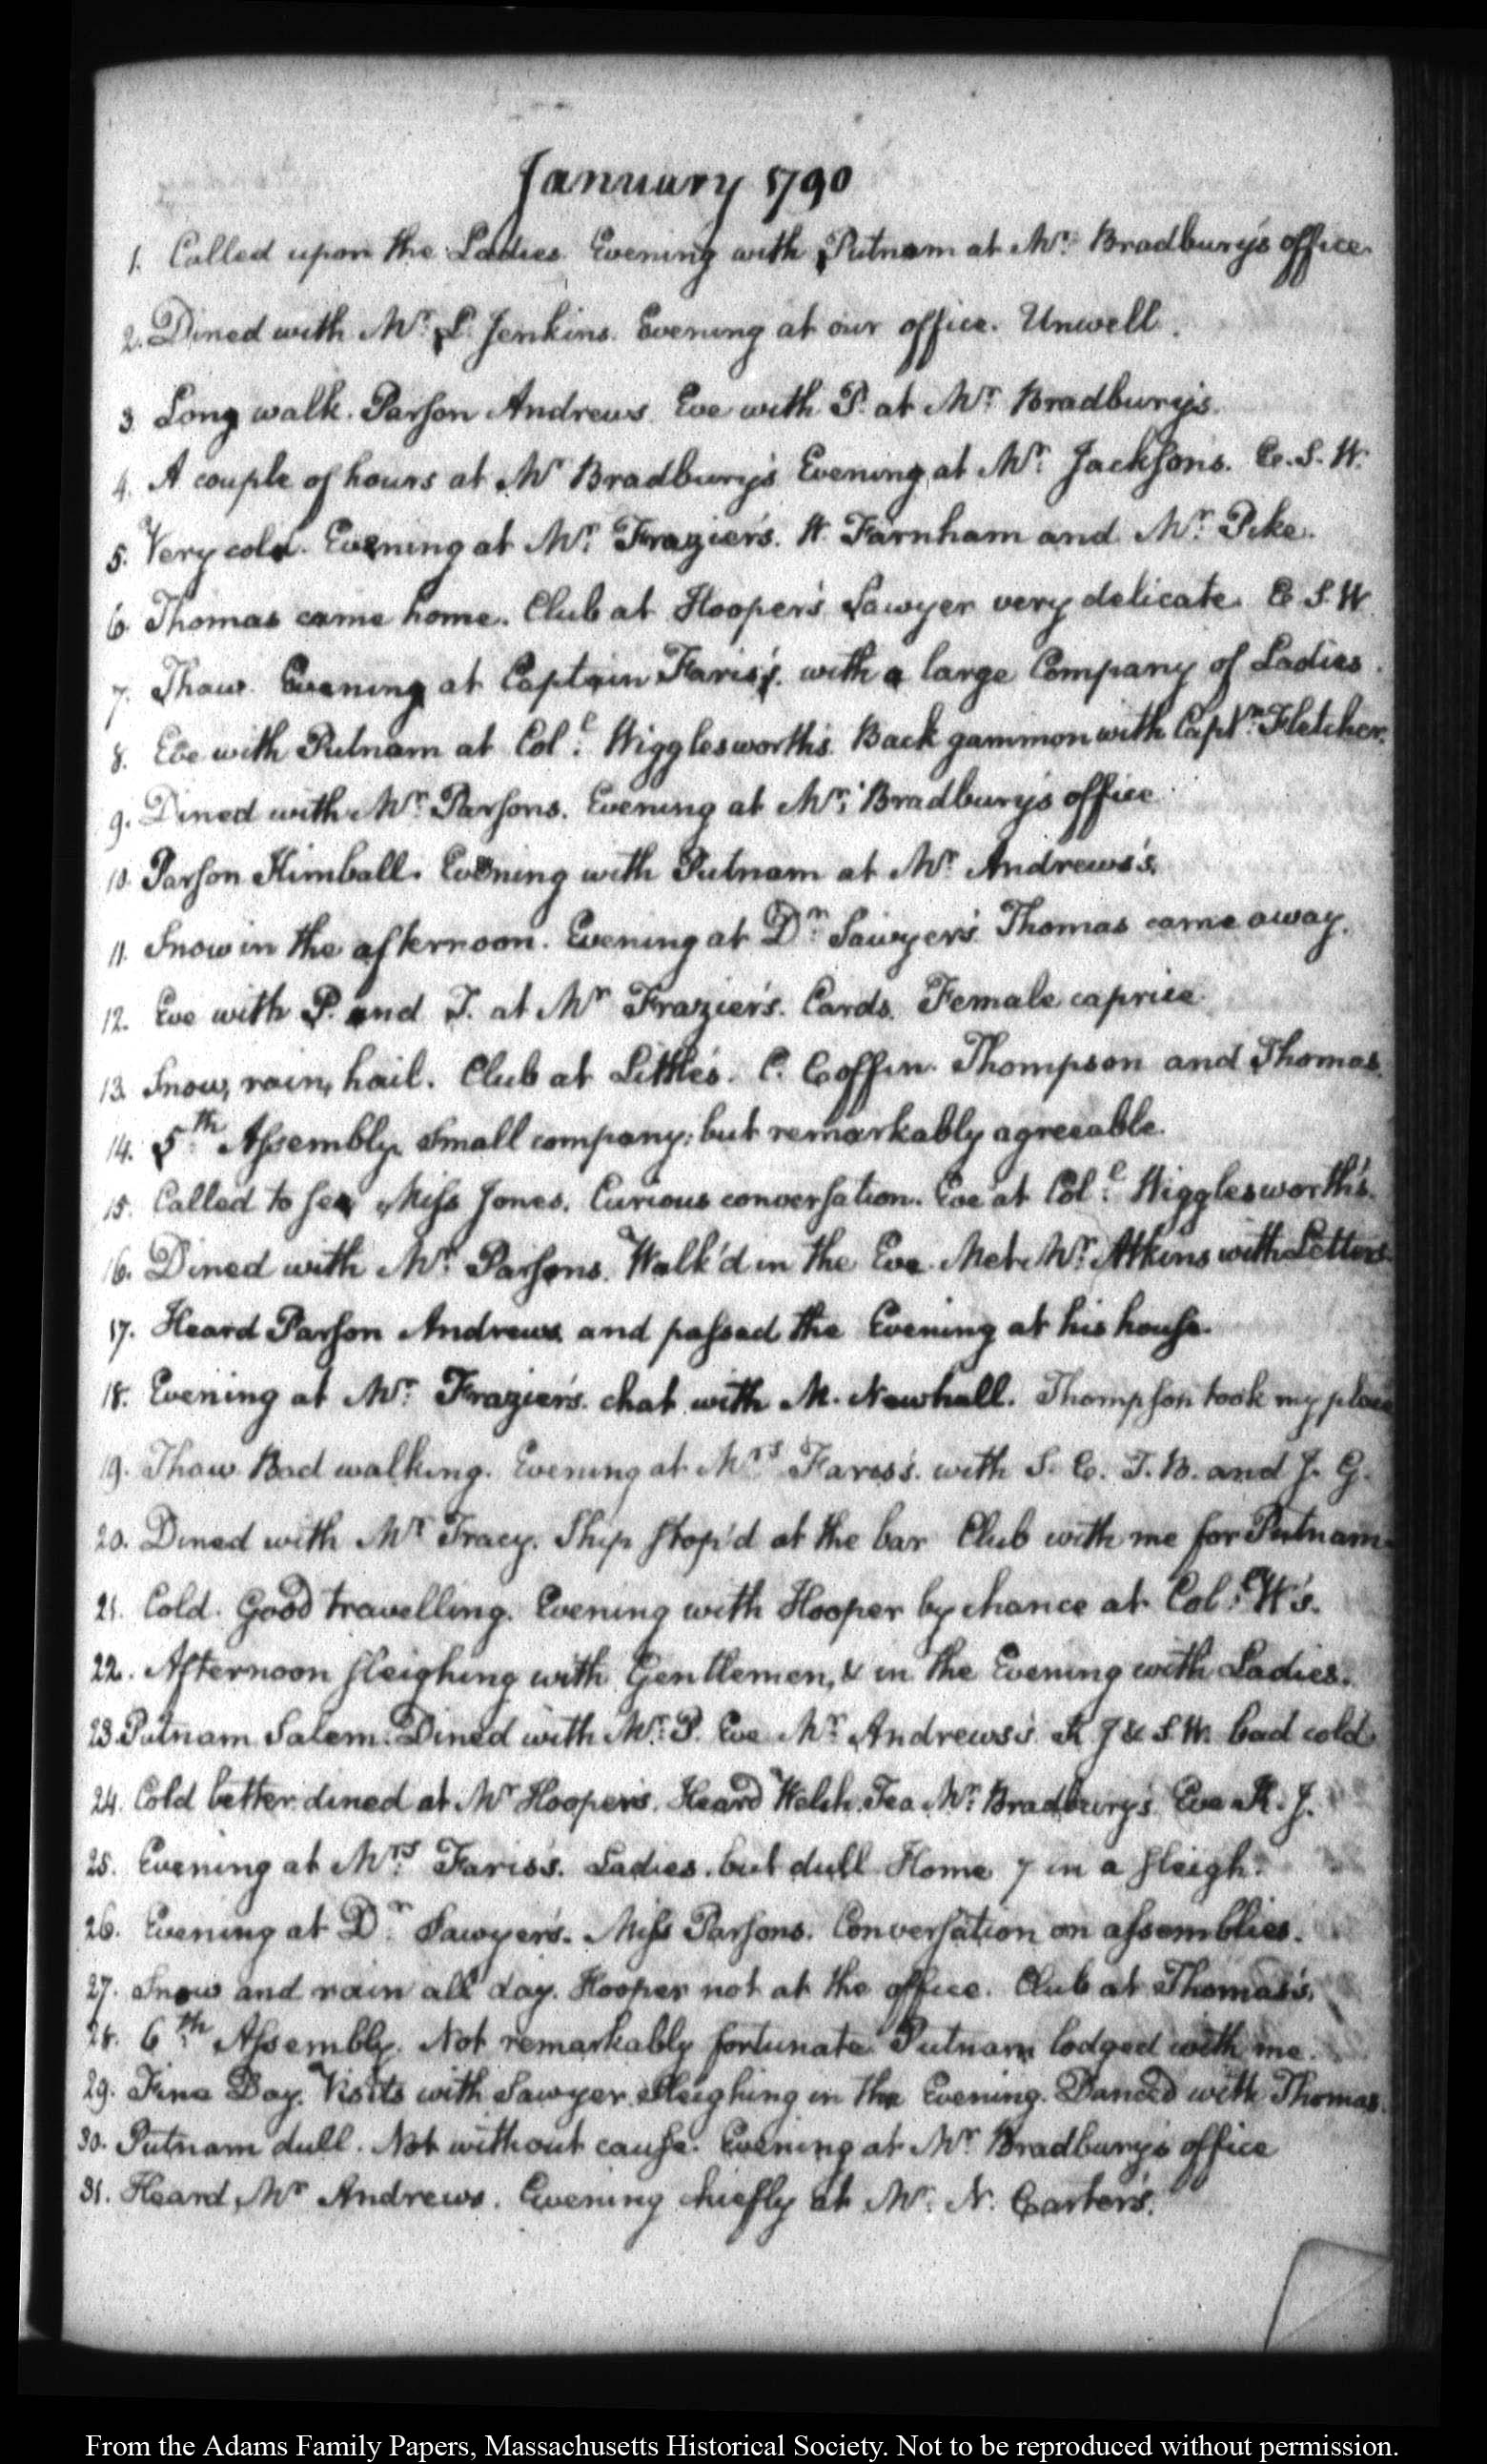 January 1790
1. Called upon the Ladies. Evening with Putnam at Mr. Bradbury's office.
2. Dined with Mr. Jenkins. Evening at our office. Unwell.
3 Long walk. Parson Andrews. Eve with P. at Mr. Bradbury's.
4. A couple of hours at Mr Bradbury's Evening at Mr. Jackson's. E. S. W.
5. Very cold. Evening at Mr. Frazier's. W. Farnham and Mr. Pike.
6. Thomas came home. Club at Hooper's Sawyer very delicate. E S. W
7. Thaw. Evening at Captain Faris's. with a large Company of Ladies.
8. Eve with Putnam at Col.l Wigglesworth's. Back gammon with Captn. Fletcher.
9. Dined with Mr. Parsons. Evening at Mr. Bradbury's office
10. Parson Kimball. Evening with Putnam at Mr. Andrews's.
11. Snow in the afternoon. Evening at Dr. Sawyer's. Thomas came away.
12. Eve with P. and T. at Mr Frazier's. Cards. Female caprice.
13. Snow, rain, hail. Club at Little's. C. Coffin. Thompson and Thomas.
14. 5th. Assembly. Small company: but remarkably agreeable.
15. Called to see Miss Jones. Curious conversation. Eve at Col.l Wigglesworth's.
16. Dined with Mr. Parsons. Walk'd in the Eve. Met Mr. Atkins with Letters.
17. Heard Parson Andrews and passed the Evening at his house.
18. Evening at Mr. Frazier's. chat with M. Newhall. Thompson took my place
19. Thaw. Bad walking. Evening at Mrs. Faris's. with S. C. T. B. and J. G.
20. Dined with Mr Tracy. Ship stop'd at the bar Club with me for Putnam.
21. Cold. Good travelling. Evening with Hooper by chance at Col.l W's.
22. Afternoon sleighing with Gentlemen, & in the Evening with Ladies.
23. Putnam Salem. Dined with Mr. P. Eve Mr. Andrews's. K J & S. W. bad cold
24. Cold better. dined at Mr Hooper's. Heard Welch. Tea Mr. Bradbury's. Eve K. J.
25. Evening at Mrs. Faris's. Ladies. but dull Home 7 in a sleigh.
26. Evening at Dr. Sawyer's. Miss Parsons. Conversation on assemblies.
27. Snow and rain all day. Hooper not at the office. Club at Thomas's.
28. 6th Assembly. Not remarkably fortunate. Putnam lodged with me.
29. Fine Day. Visits with Sawyer. Sleighing in the Evening. Danced with Thomas.
30. Putnam dull. Not without cause. Evening at Mr. Bradbury's office
31. Heard Mr Andrews. Evening chiefly at Mr. N. Carter's.
From the Adams Family Papers, Massachusetts Historical Society. Not to be reproduced without permission.